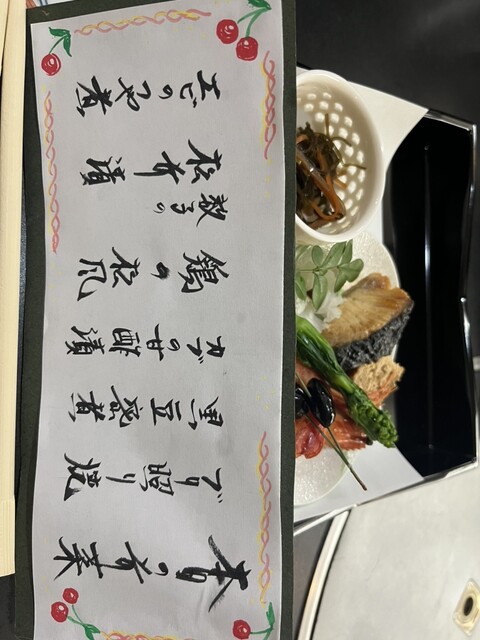 春の前菜
ブリ照り焼
黒豆蜜煮
カブの甘酢漬
鶏の松風
数子の
松前漬
エビのつや煮